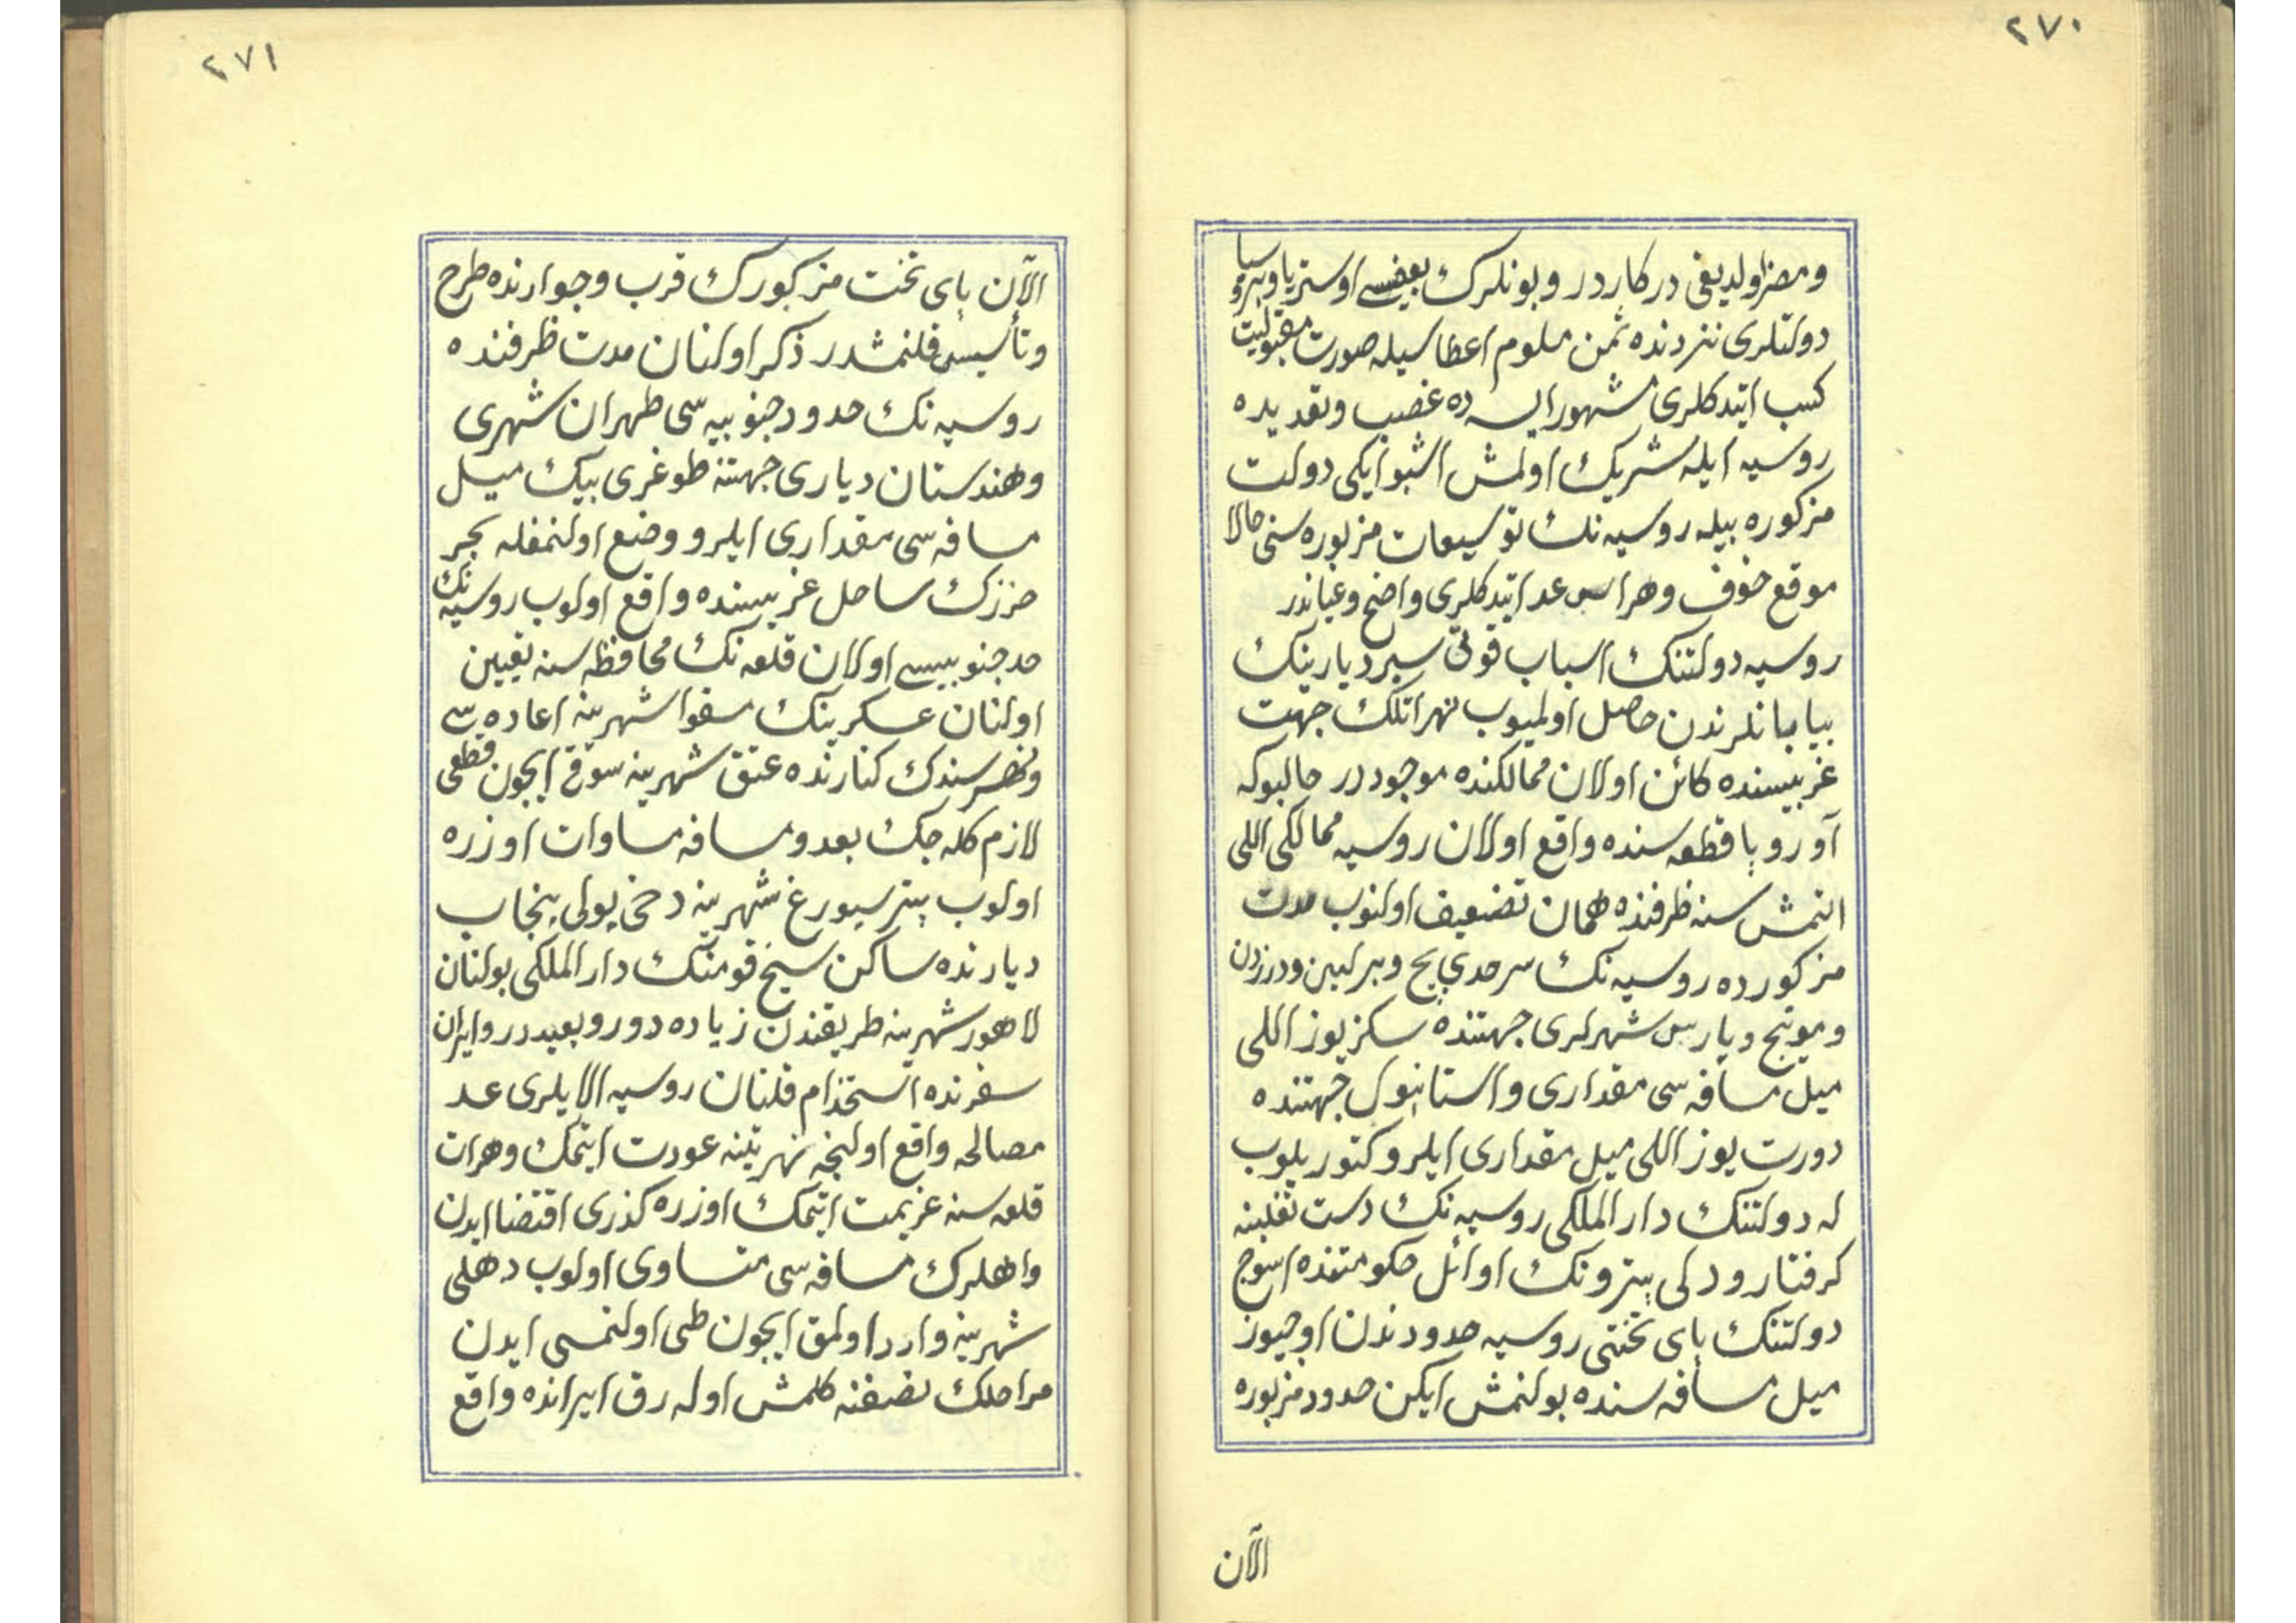 ٢٧٠
ومضر اولديغى دركاردر وبونلرك بعضيسے اوستريا وپروسيا
دولتلرى نزدنده ثمن معلوم اعطاسيله صورت مقبوليت
كسب ايتدكلرى مشهور ايسه ده غصب وتعديده
روسيه ايله شريك اولمش اشبو ايكى دولت
مزكوره بيله روسيه نك توسيعات مزبوره سنى حالا
موقع خوف وهراس عد ايتدكلرى واضح وعياندر
روسيه دولتنك اسباب قوتى سبر ديارينك
بيابانلرندن حاصل اولميوب نهر اتلك جهت
غربيسنده كائن اولان ممالكنده موجوددر حالبوكه
آوروپا قطعه سنده واقع اولان روسيه ممالكى اللى
التمش سنه ظرفنده همان تضعيف اولنوب مدت
مزكورده روسيه نك سرحدى پچ وبرلين ودرزدن
ومونيخ وپارس شهرلرى جهتنده سكز يوز اللى
ميل مسافه سى مقدارى واستانبول جهتنده
درت يوز اللى ميل مقدارى ايلرو كتوريلوب
له دولتنك دار الملكى روسيه نك دست تغلبنه
كرفتار ودلى پترونك اوائل حكومتنده اسوج
دولتنك پاى تختى روسيه حدودندن اوچيوز
ميل مسافه سنده بولنمش ايكن حدود مزبوره
الآن
٢٧١
الآن پاى تخت مزكورك قرب وجوارنده طرح
وتأسيس قلنمشدر ذكر اولنان مدت ظرفنده
روسيه نك حدود جنوبيه سى طهران شهرى
وهندستان ديارى جهتنه طوغرى بيك ميل
مسافه سى مقدارى ايلرو وضع اولنمغله بحر
خزرك ساحل غربيسنده واقع اولوب روسيه نك
حد جنوبيسے اولان قلعه نك محافظه سنه تعيين
اولنان عسكرينك مسقوا شهرينه اعاده سے
ونهر سندك كنارنده عتق شهرينه سوقى ايچون قطعى
لازم كله جك بعد ومسافه مساوات اوزره
اولوب پترسبورغ شهرينه دخى يولى پنجاب
ديارنده ساكن سيخ قومنك دار الملكى بولنان
لاهور شهرينه طريقندن زياده دور وبعيددر وايران
سفرنده استخدام قلنان روسيه الايلرى عقد
مصالحه واقع اولنجه نهر تينه عودت ايتمك وهرات
قلعه سنه عزيمت ايتمك اوزره كذرى اقتضا ايدن
واهلرك مسافه سى متساوى اولوب دهلى
شهرينه وارد اولمق ايچون طى اولنمسى ايدن
مراحلك نصفنه كلمش اوله رق ايرانده واقع